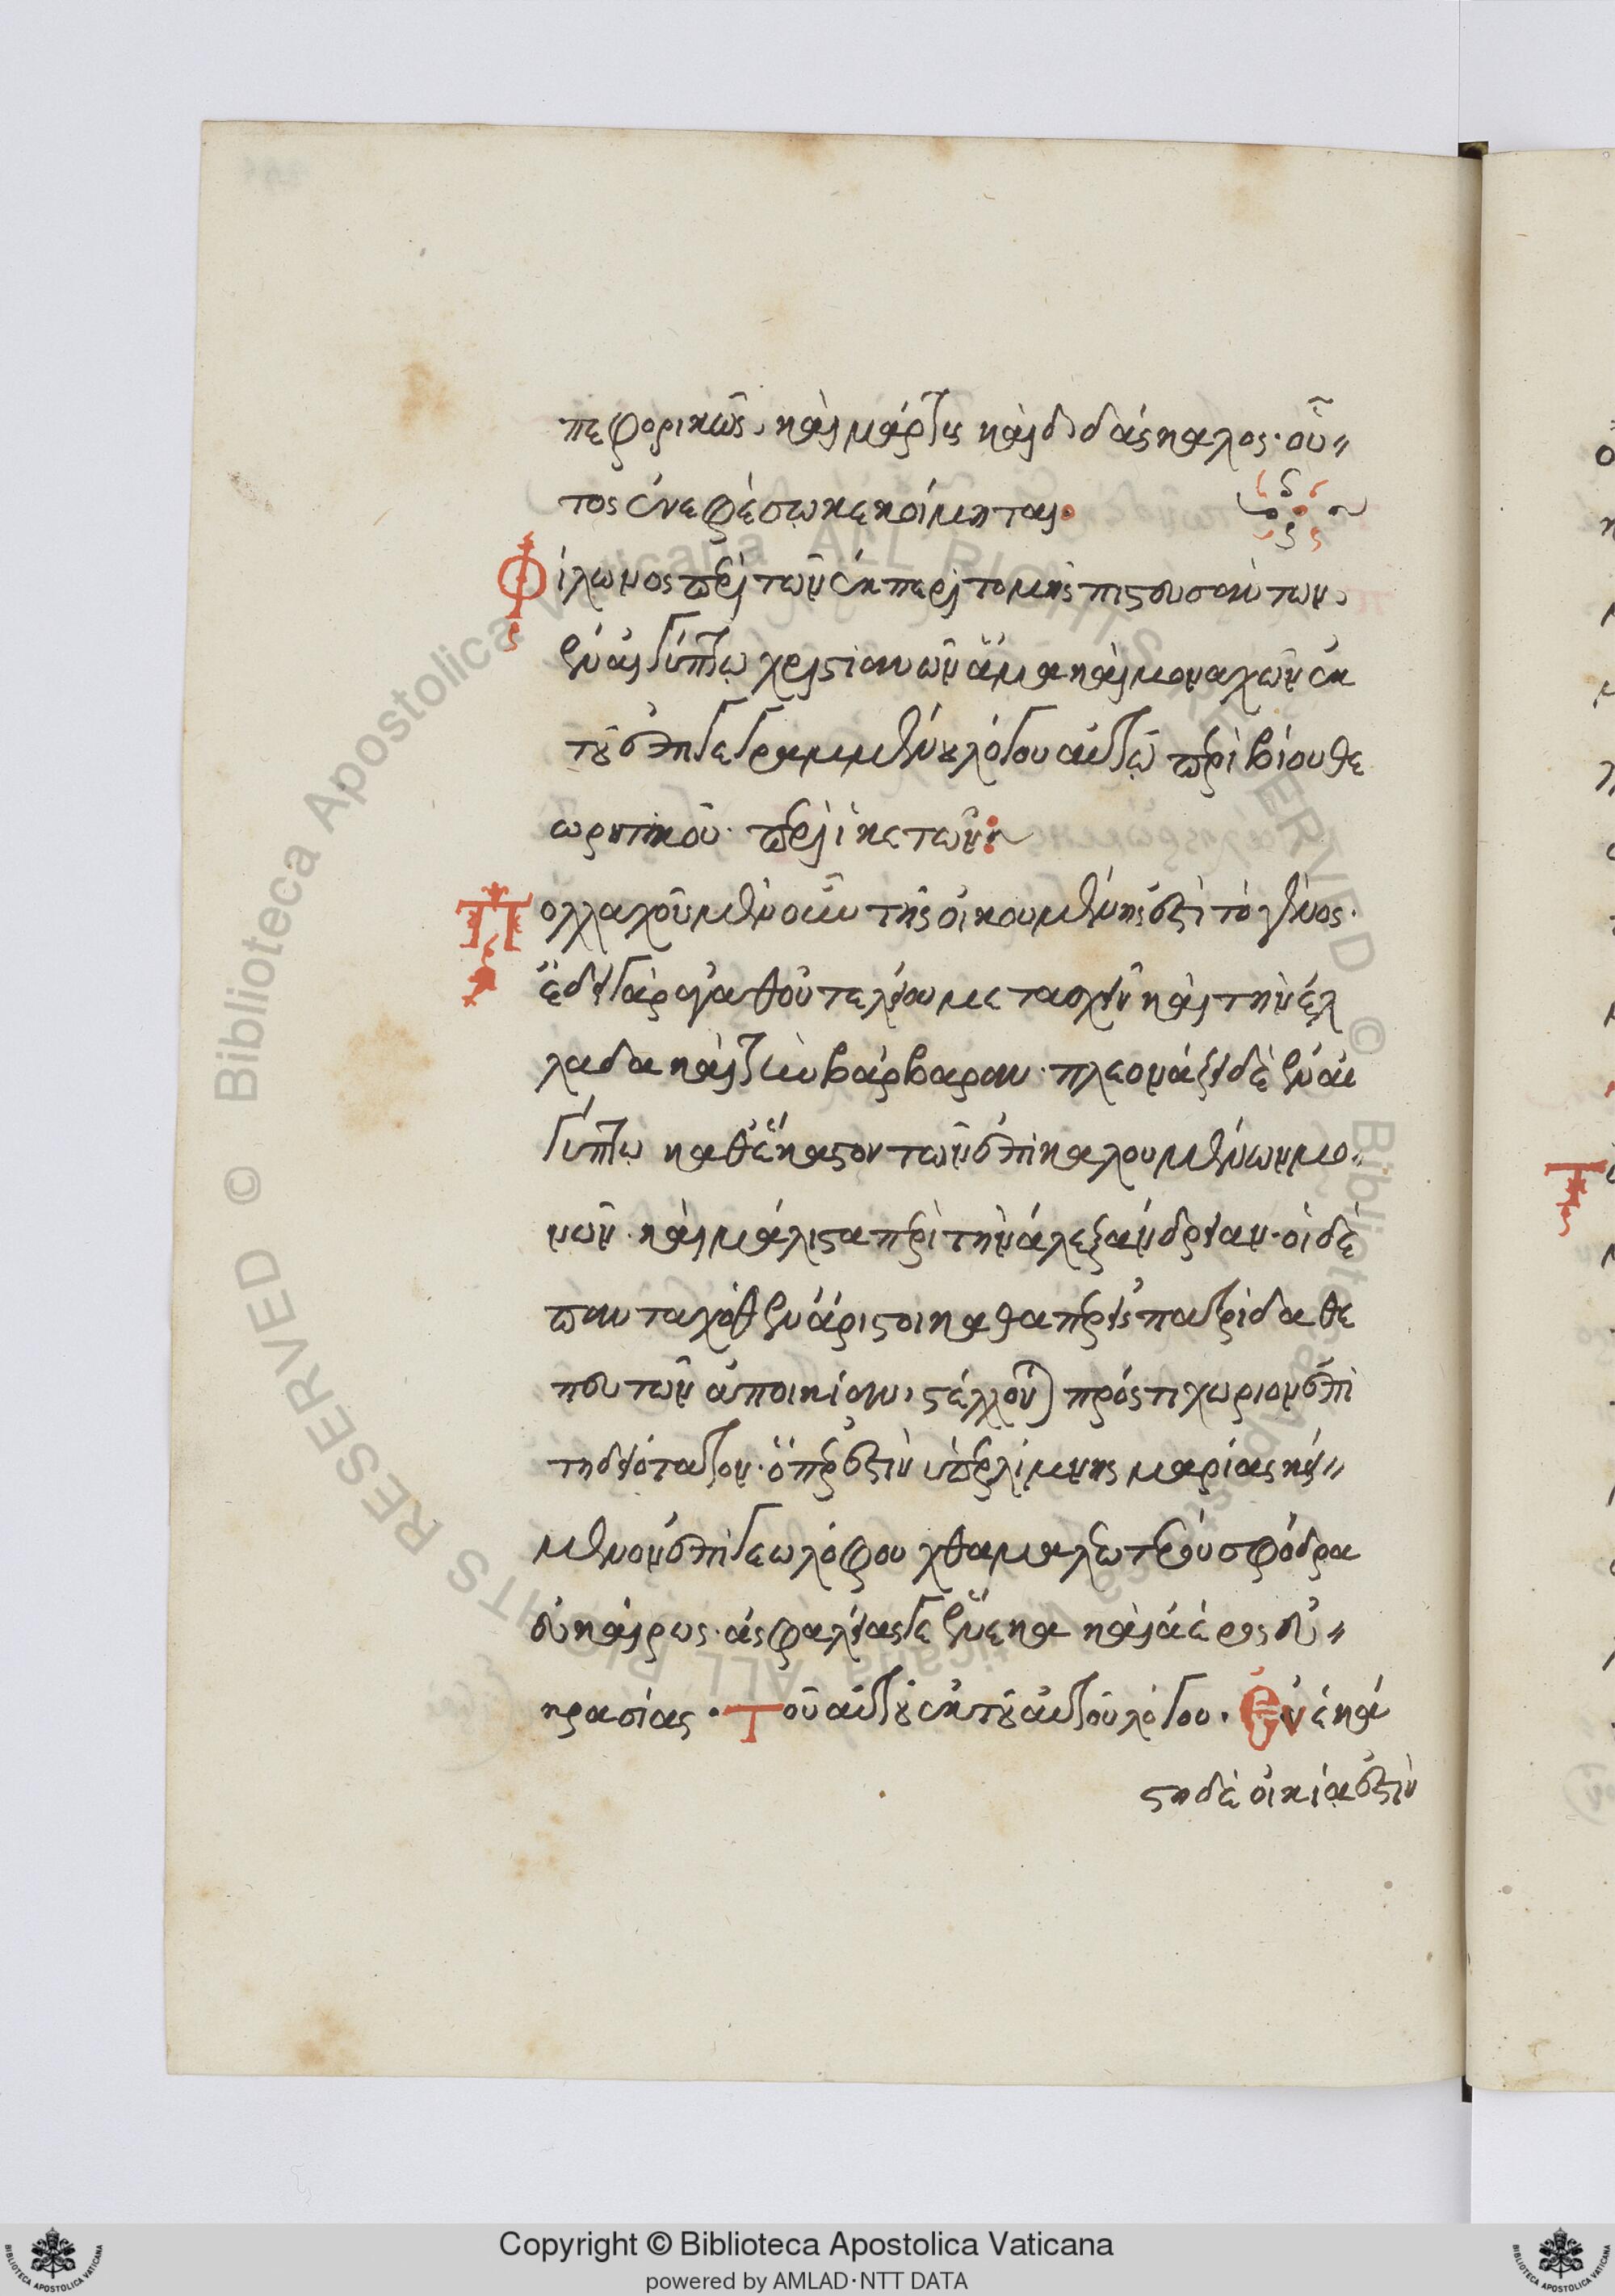 πεφορικώς, καὶ μάρτυς καὶ διδάσκαλος· οὗ〃
τος ἐν εφέσω κεκοίμηται·
Φίλωνος περὶ τῶν ἐκ περιτομῆς πιστευσάντων,
ἐν αἰγύπτω χριστιανῶν ἅμα καὶ μοναχῶν ἐκ
τοῦ ἐπιγεγραμμένου λόγου αὐτῶ περὶ βίου θε
ωρητικοῦ· περὶ ἱκετῶν:
Πολλαχοῦ μὲν οὖν τῆς οἰκουμένης ἐστὶ τὸ γένος·
ἔδει γὰρ ἀγαθοῦ τελείου μετασχεῖν καὶ τὴν ἑλ
λάδα καὶ τὴν βάρβαρον· πλεονάζει δὲ ἐν αἰ
γύπτω καθ' ἕκαστον τῶν ἐπικαλουμένων νο
μῶν· καὶ μάλιστα περὶ τὴν ἀλεξάνδρειαν· οἱ δὲ
πανταχόθεν ἄριστοι καθάπερ εἰς πατρίδα θε
πευτῶν ἀποικίαν, στέλλονται πρός τι χωρίον ἐπι
τηδειότατον· ὅπερ ἐστὶν ὑπὲρ λίμνης μαρίας κεί〃
μενον ἐπὶ γεωλόφου χθαμαλωτέρου σφόδρα
εὐκαίρως· ἀσφαλείας γε ἕνεκα καὶ ἀέρος εὐ〃
κρασίας· Τοῦ αὐτοῦ ἐκ τοῦ αὐτοῦ λόγου· Ἐν ἑκά
στη δὲ οἰκία ἐστὶν
Copyright © Biblioteca Apostolica Vaticana
powered by AMLAD·NTT DATA